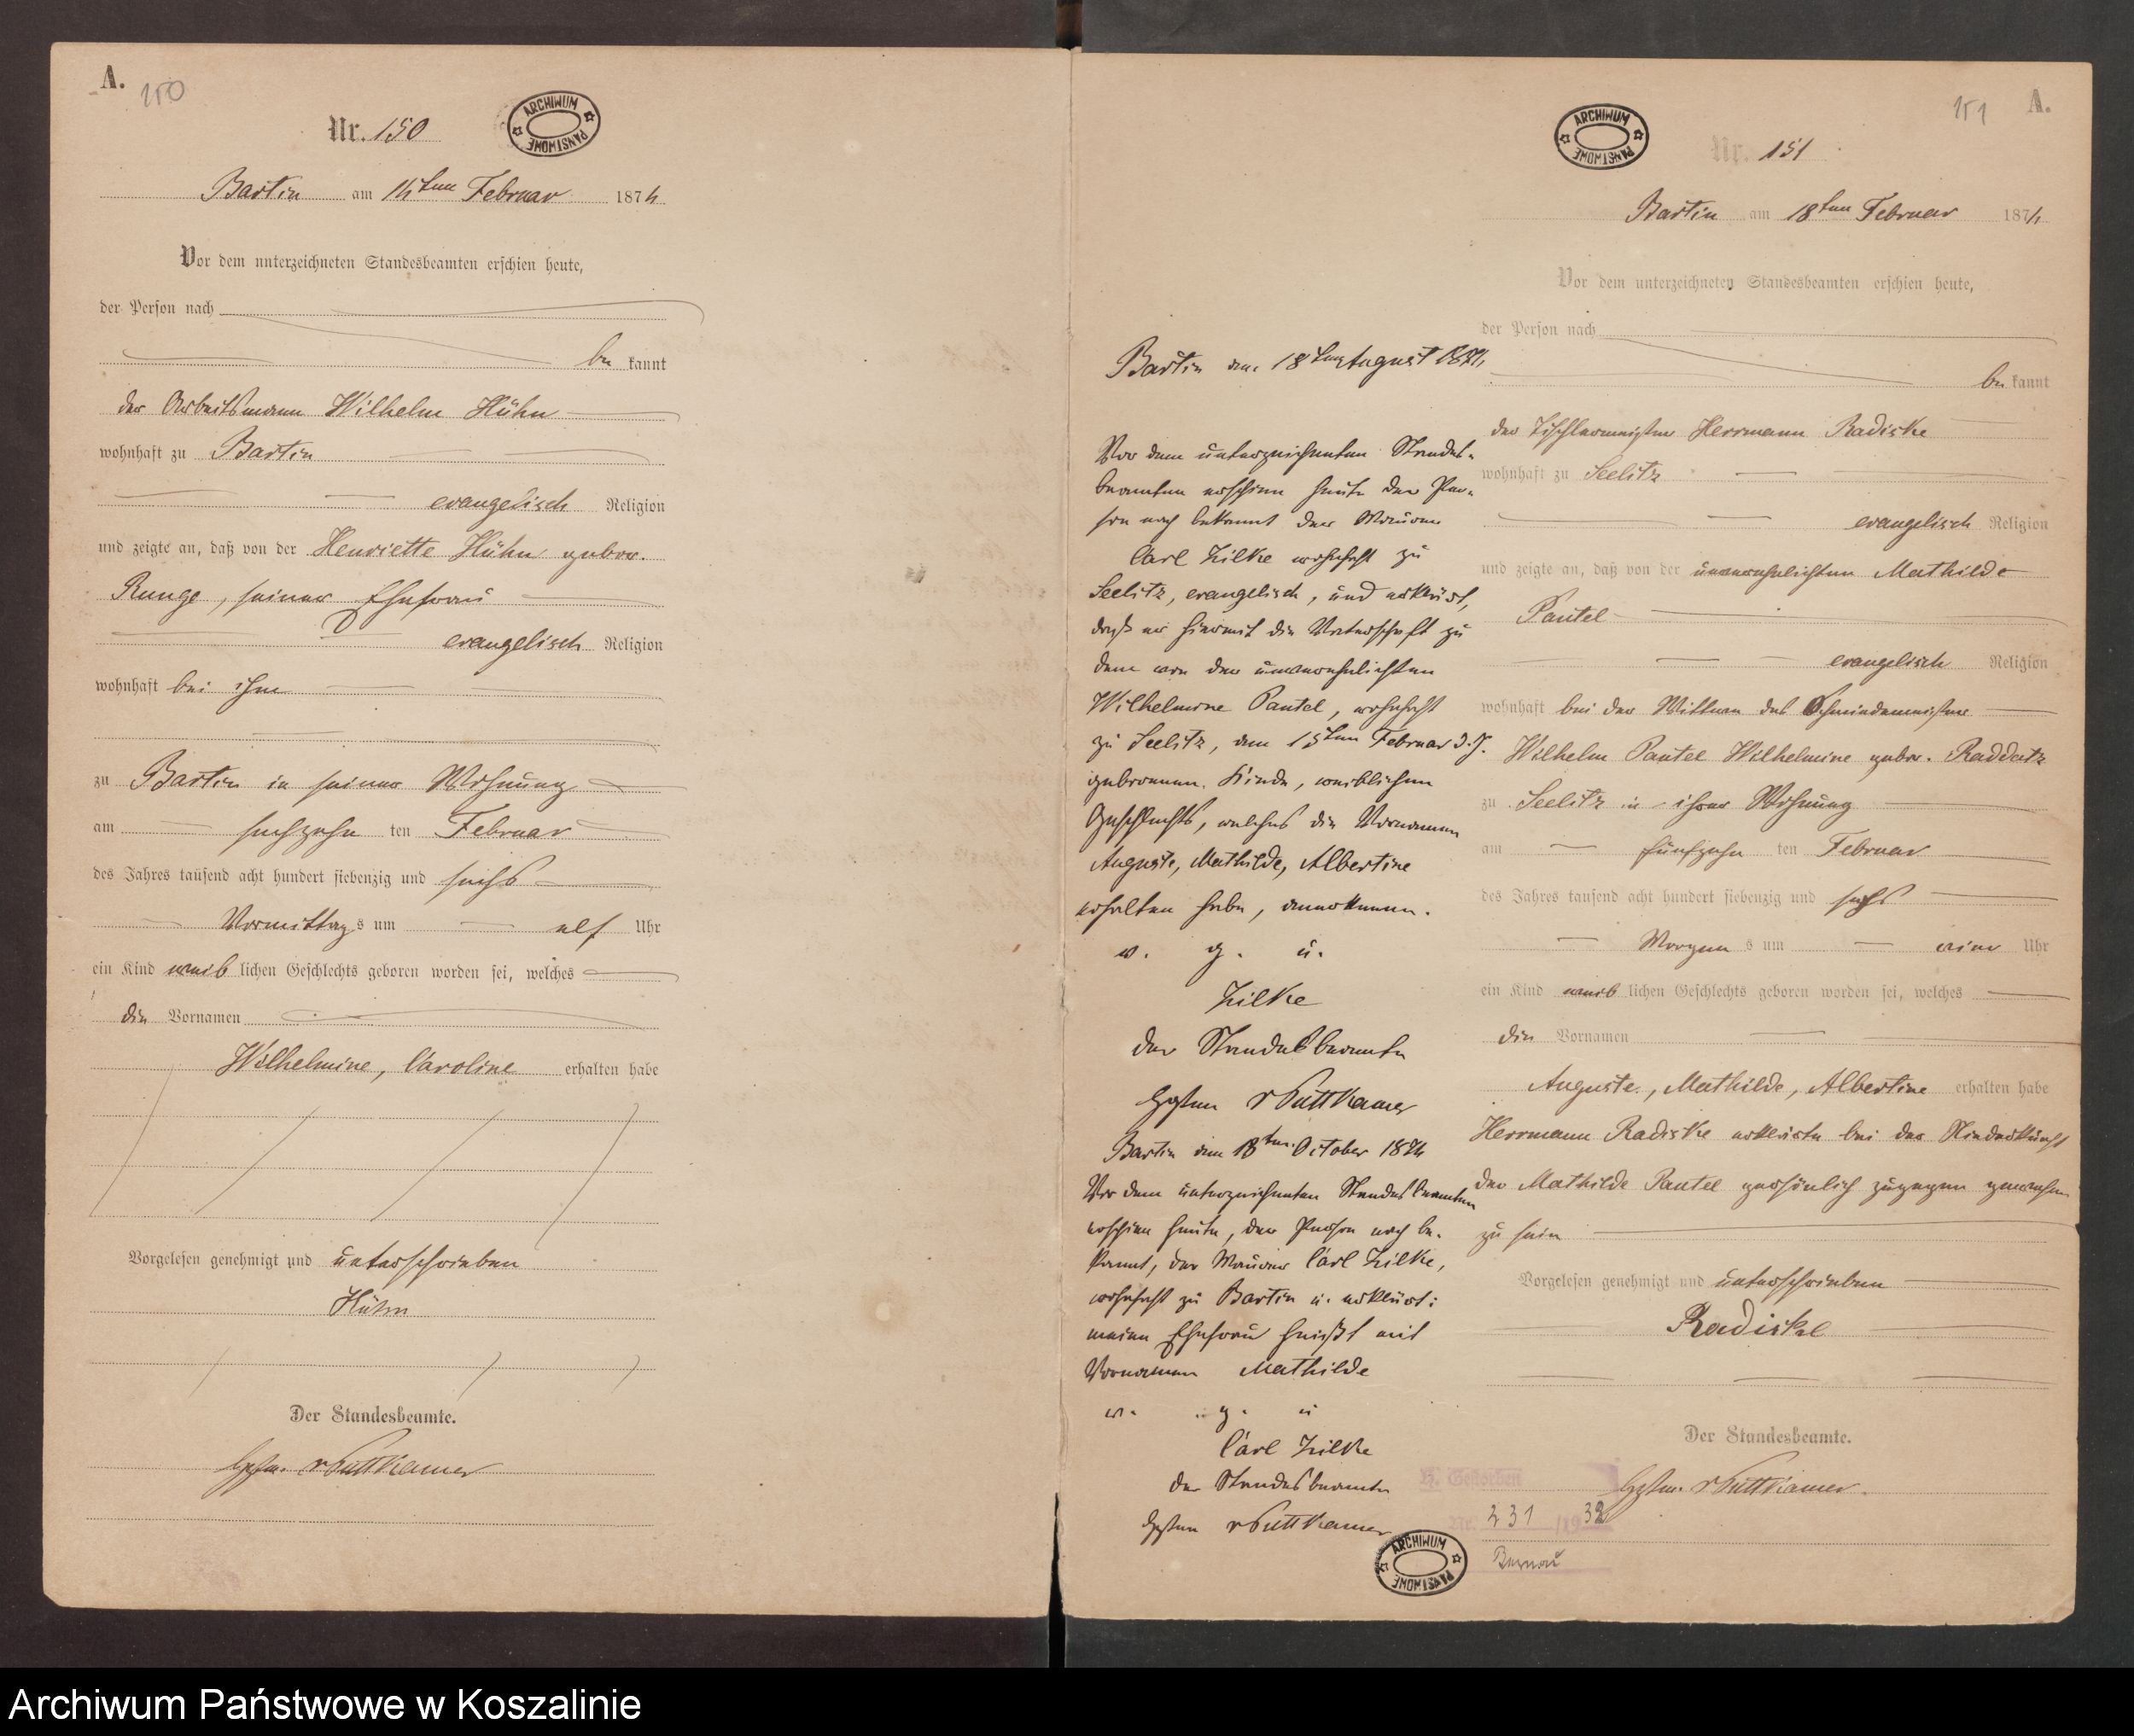 A. 150
Nr. 150
ARCHIWUM PAŃSTWOWE
Bartin am 16ten Februar 1876
Vor dem unterzeichneten Standesbeamten erschien heute,
der Person nach
be kannt
der Arbeitsmann Wilhelm Hühn
wohnhaft zu Bartin
evangelisch Religion
und zeigte an, daß von der Henriette Hühn gebor.
Runge, seiner Ehefrau
evangelisch Religion
wohnhaft bei ihm
zu Bartin in seiner Wohnung
am sechzehn ten Februar
des Jahres tausend acht hundert siebenzig und sechs
Vormittag s um elf Uhr
ein Kind weib lichen Geschlechts geboren worden sei, welches
die Vornamen
Wilhelmine, Caroline erhalten habe
Vorgelesen genehmigt und unterschrieben
Hühn
Der Standesbeamte.
v Puttkamer
151 A.
ARCHIWUM PAŃSTWOWE
Nr. 151
Bartin am 18ten Februar 1876
Vor dem unterzeichneten Standesbeamten erschien heute,
der Person nach
be kannt
der Tischlermeister Herrmann Radiske
wohnhaft zu Seelitz
evangelisch Religion
und zeigte an, daß von der unverehelichten Mathilde
Pantel
evangelisch Religion
wohnhaft bei der Wittwe des Schmiedemeister
Wilhelm Pantel Wilhelmine gebor. Raddatz
zu Seelitz in ihrer Wohnung
am fünfzehn ten Februar
des Jahres tausend acht hundert siebenzig und sechs
Morgen s um einer Uhr
ein Kind weib lichen Geschlechts geboren worden sei, welches
die Vornamen
Auguste, Mathilde, Albertine erhalten habe
Herrmann Radiske erklärte bei der Niederkunft
der Mathilde Pantel persönlich zugegen gewesen
zu sein
Vorgelesen genehmigt und unterschrieben
Radiske
Der Standesbeamte.
v Puttkamer.
Bartin den 18ten August 1876
Vor dem unterzeichneten Standes-
beamten erschien heute der Per-
son nach bekannt der Maurer
Carl Zilke wohnhaft zu
Seelitz, evangelisch, und erklärt,
daß er hiermit die Vaterschaft zu
dem von der unverehelichten
Wilhelmine Pantel, wohnhaft
zu Seelitz, den 15ten Februar d. J.
geborenen Kinde, weiblichen
Geschlechts, welches die Vornamen
Auguste, Mathilde, Albertine
erhalten habe, anerkenne.
v. g. u.
Zilke
der Standesbeamte
v Puttkamer
Bartin den 18ten October 1876
Vor dem unterzeichneten Standesbeamten
erschien heute, der Person nach be-
kannt, der Maurer Carl Zilke,
wohnhaft zu Bartin u. erklärt:
meine Ehefrau heißt mit
Vornamen Mathilde
v. g. u
Carl Zilke
der Standesbeamte
v Puttkamer
H. Gestorben
Nr. 231 /1932
Bernau
ARCHIWUM PAŃSTWOWE
Archiwum Państwowe w Koszalinie